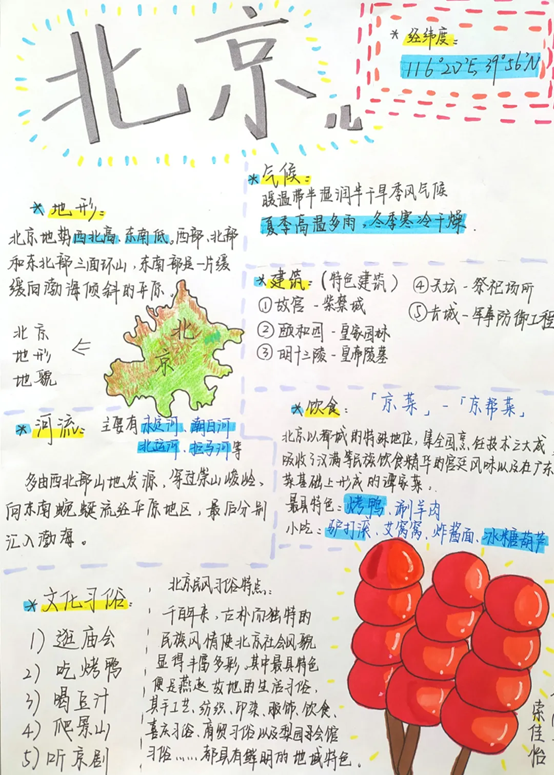 北京
* 经纬度:
116°20'E, 39°56'N
* 气候:
暖温带半湿润半干旱季风气候
夏季高温多雨,冬季寒冷干燥.
* 地形:
北京地势西北高、东南低,西部、北部
和东北部三面环山,东南部是一片缓
缓向渤海倾斜的平原
北京
地形
地貌
⇐
北京
* 建筑:(特色建筑)
①故宫-紫禁城
②颐和园-皇家园林
③明十三陵-皇帝陵墓
④天坛-祭祀场所
⑤长城-军事防御工程
* 河流:主要有永定河、潮白河
北运河、拒马河等
多由西北部山地发源,穿过崇山峻岭,
向东南蜿蜒流经平原地区,最后分别
汇入渤海。
* 饮食:「京菜」-「京帮菜」
北京以都城的特殊地位,集全国烹饪技术之大成
吸收了汉满等民族饮食精华的宫廷风味以及在广东
菜基础上形成的谭家菜.
最具特色:烤鸭、涮羊肉
小吃:驴打滚、艾窝窝、炸酱面、冰糖葫芦
* 文化习俗:
1)逛庙会
2)吃烤鸭
3)喝豆汁
4)爬景山
5)听京剧
北京民风习俗特点:
千百年来,古朴而独特的
民族风情使北京社会风貌
显得丰富多彩,其中最具特色
便是燕赵故地的生活习俗,
其手工艺、纺织、印染、服饰、饮食、
喜庆习俗、商贸习俗以及梨园会馆
习俗......都具有鲜明的地域特色.
佳怡